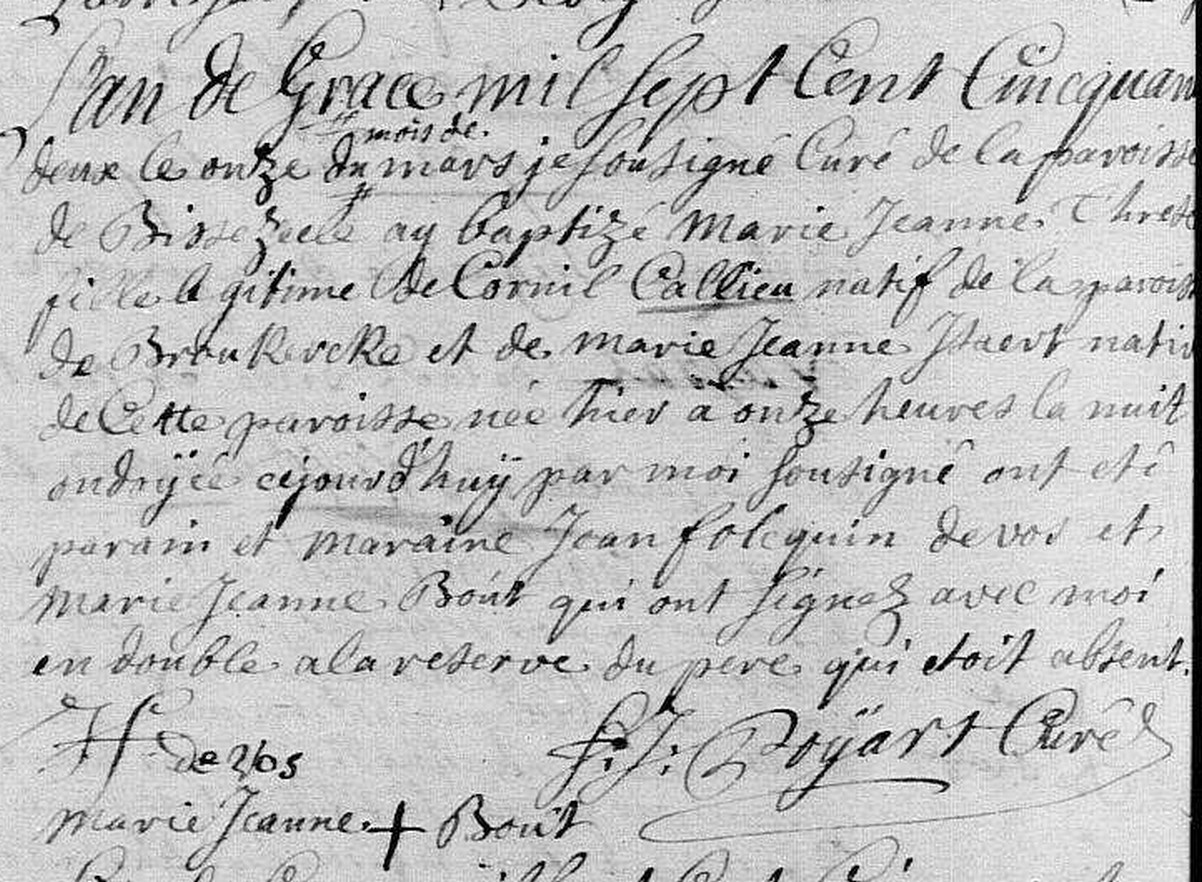 L'an de Grace mil sept Cent Cincquan
mois de
deux le onze du mars je sousigné Curé de la paroisse
de Bissezeele ay baptizé Marie Jeanne Threse
fille legitime de Cornil Callieu natif de la paroiss
de Broukercke et de marie Jeanne Staert nativ
de Cette paroisse née hier a onze heures la nuit
ondoÿée cejourd'huÿ par moi sousigné ont eté
parain et maraine Jean folcquin de vos et
marie Jeanne Boút qui ont signez avec moi
en double a la reserve du pere qui etoit absent.
de Vos
Poÿart Curé
Marie Jeanne + Boút